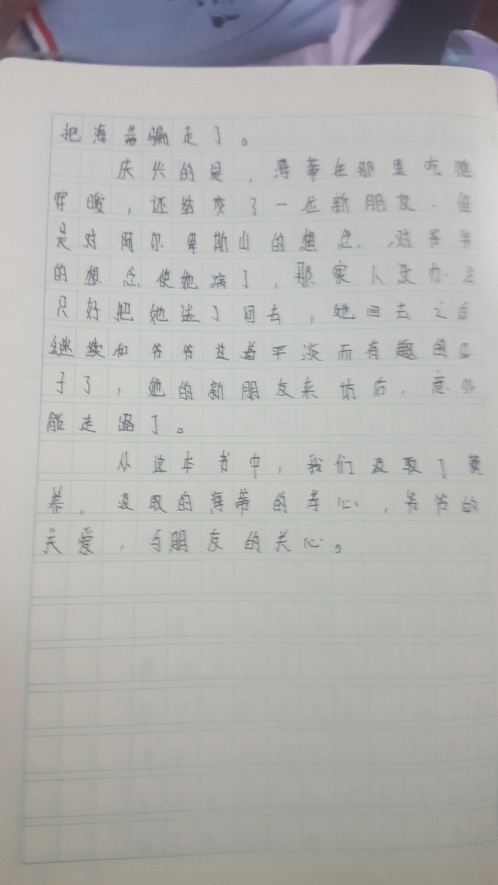 把海蒂骗走了。
庆兴的是，海蒂在那里吃饱
穿暖，还结交了一位新朋友．但
是对阿尔卑斯山的想念，对爷爷
的想念使她病了，那家人没办法
只好把她送了回去，她回去之后
继续和爷爷过着平淡而有趣的日
子了，她的新朋友来访后，意外
能走路了。
从这本书中，我们汲取了营
养，汲取的海蒂的孝心，爷爷的
关爱，与朋友的关心。